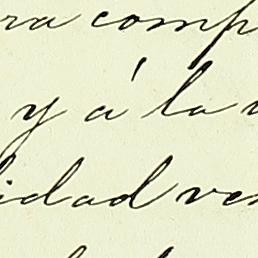 ra comp
y á la v
lidad ven